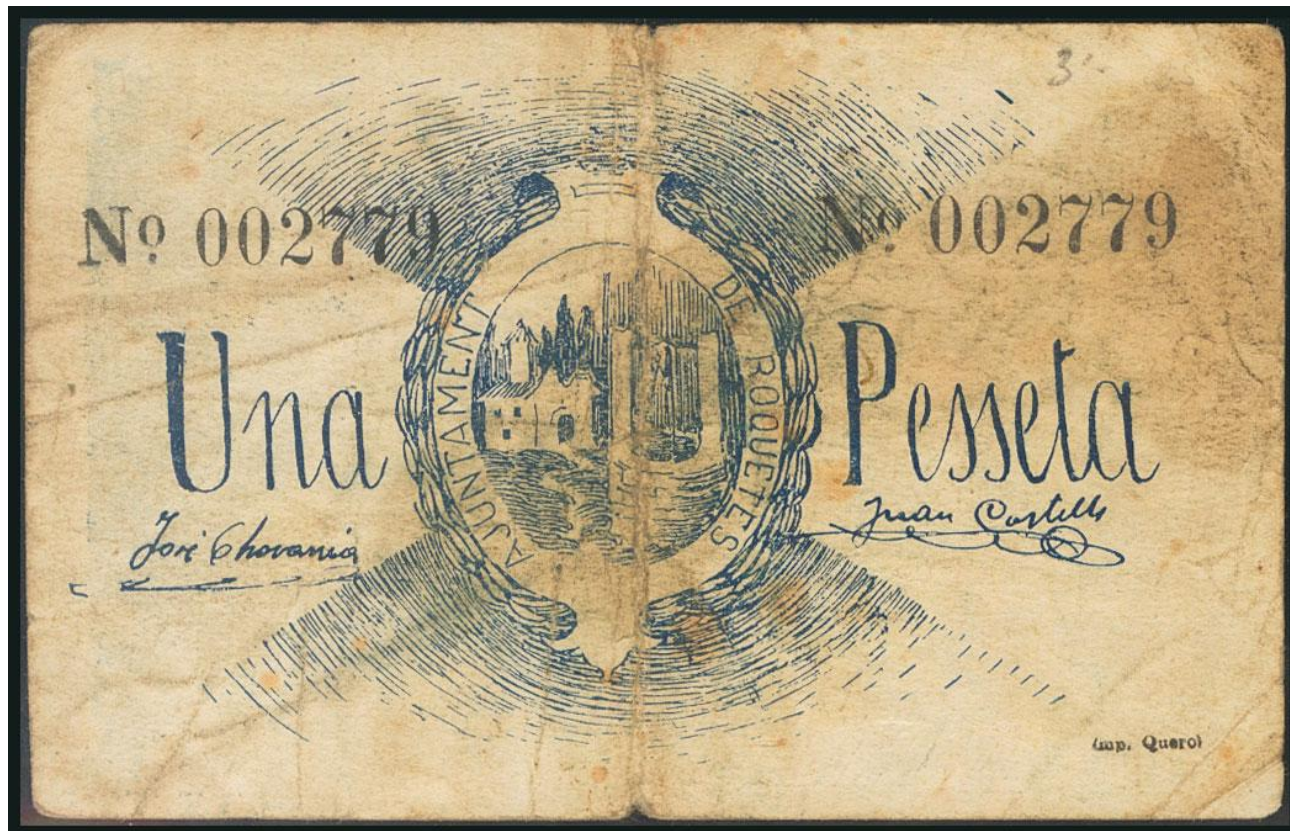 3-
Nº 002779 Nº 002779
AJUNTAMENT DE ROQUETES
Una Pesseta
José Chovania Juan Castells
(Imp. Quero)